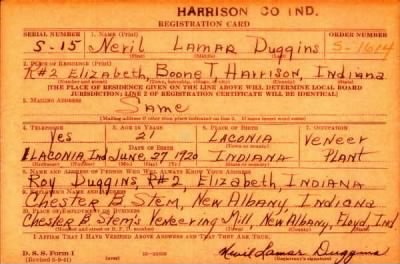 HARRISON CO IND.
REGISTRATION CARD
SERIAL NUMBER 1. NAME (Print) ORDER NUMBER
S-15 Neril Lamar Duggins S-1614
(First) (Middle) (Last)
2. PLACE OF RESIDENCE (Print)
R#2 Elizabeth, Boone, Harrison, Indiana
[THE PLACE OF RESIDENCE GIVEN ON THE LINE ABOVE WILL DETERMINE LOCAL BOARD
JURISDICTION; LINE 2 OF REGISTRATION CERTIFICATE WILL BE IDENTICAL]
3. MAILING ADDRESS
Same
[Mailing address if other than place indicated on line 2. If same insert word same]
4. TELEPHONE 5. AGE IN YEARS 6. PLACE OF BIRTH 7. OCCUPATION
Yes 21 LACONIA Veneer
DATE OF BIRTH (Town or county)
LACONIA, Ind June, 27 1920 INDIANA PLANT
(Exchange) (Number) (Mo.) (Day) (Yr.) (State or country)
8. NAME AND ADDRESS OF PERSON WHO WILL ALWAYS KNOW YOUR ADDRESS
Roy Duggins, R#2, Elizabeth, Indiana
9. EMPLOYER'S NAME AND ADDRESS
Chester B Stem, New Albany Indiana
10. PLACE OF EMPLOYMENT OR BUSINESS
Chester B Stem's Veneering Mill New Albany, Floyd Ind
(Number and street or R. F. D. number) (Town) (County) (State)
I AFFIRM THAT I HAVE VERIFIED ABOVE ANSWERS AND THAT THEY ARE TRUE.
D. S. S. Form 1 Neril Lamar Duggins
(Registrant's signature)